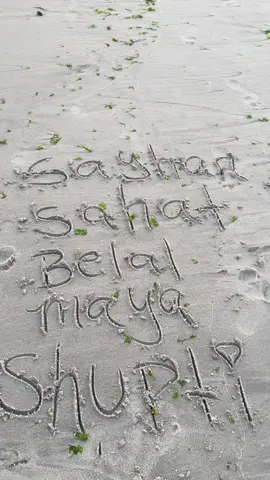 Sayttan
Sahat
Belal
maya
Shupti